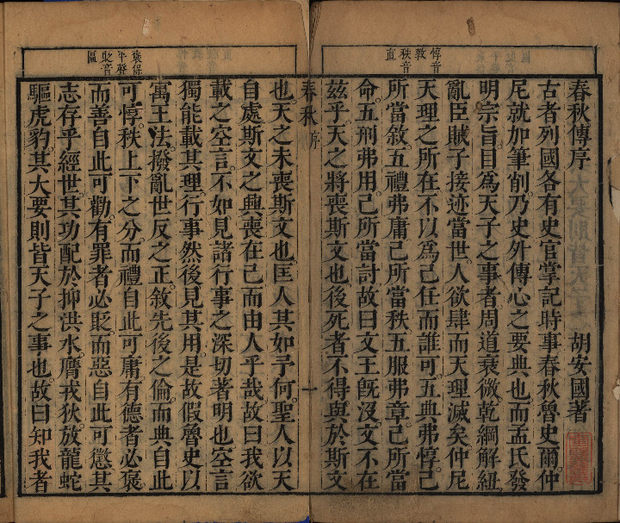 春秋傳序 胡安國著
古者列國各有史官掌記時事春秋魯史爾仲
尼就加筆削乃史外傳心之要典也而孟氏發
明宗旨目爲天子之事者周道衰微乾綱解紐
亂臣賊子接迹當世人欲肆而天理滅矣仲尼
天理之所在不以爲己任而誰可五典弗惇己
所當敘五禮弗庸己所當秩五服弗章己所當
命五刑弗用己所當討故曰文王旣沒文不在
茲乎天之將喪斯文也後死者不得與於斯文
惇音
敎
秩音
直
春秋 序
一
也天之未喪斯文也匡人其如予何聖人以天
自處斯文之興喪在己而由人乎哉故曰我欲
載之空言不如見諸行事之深切著明也空言
獨能載其理行事然後見其用是故假魯史以
寓王法撥亂世反之正敘先後之倫而典自此
可惇秩上下之分而禮自此可庸有德者必褒
而善自此可勸有罪者必貶而惡自此可懲其
志存乎經世其功配於抑洪水膺戎狄放龍蛇
驅虎豹其大要則皆天子之事也故曰知我者
平聲
貶音
區